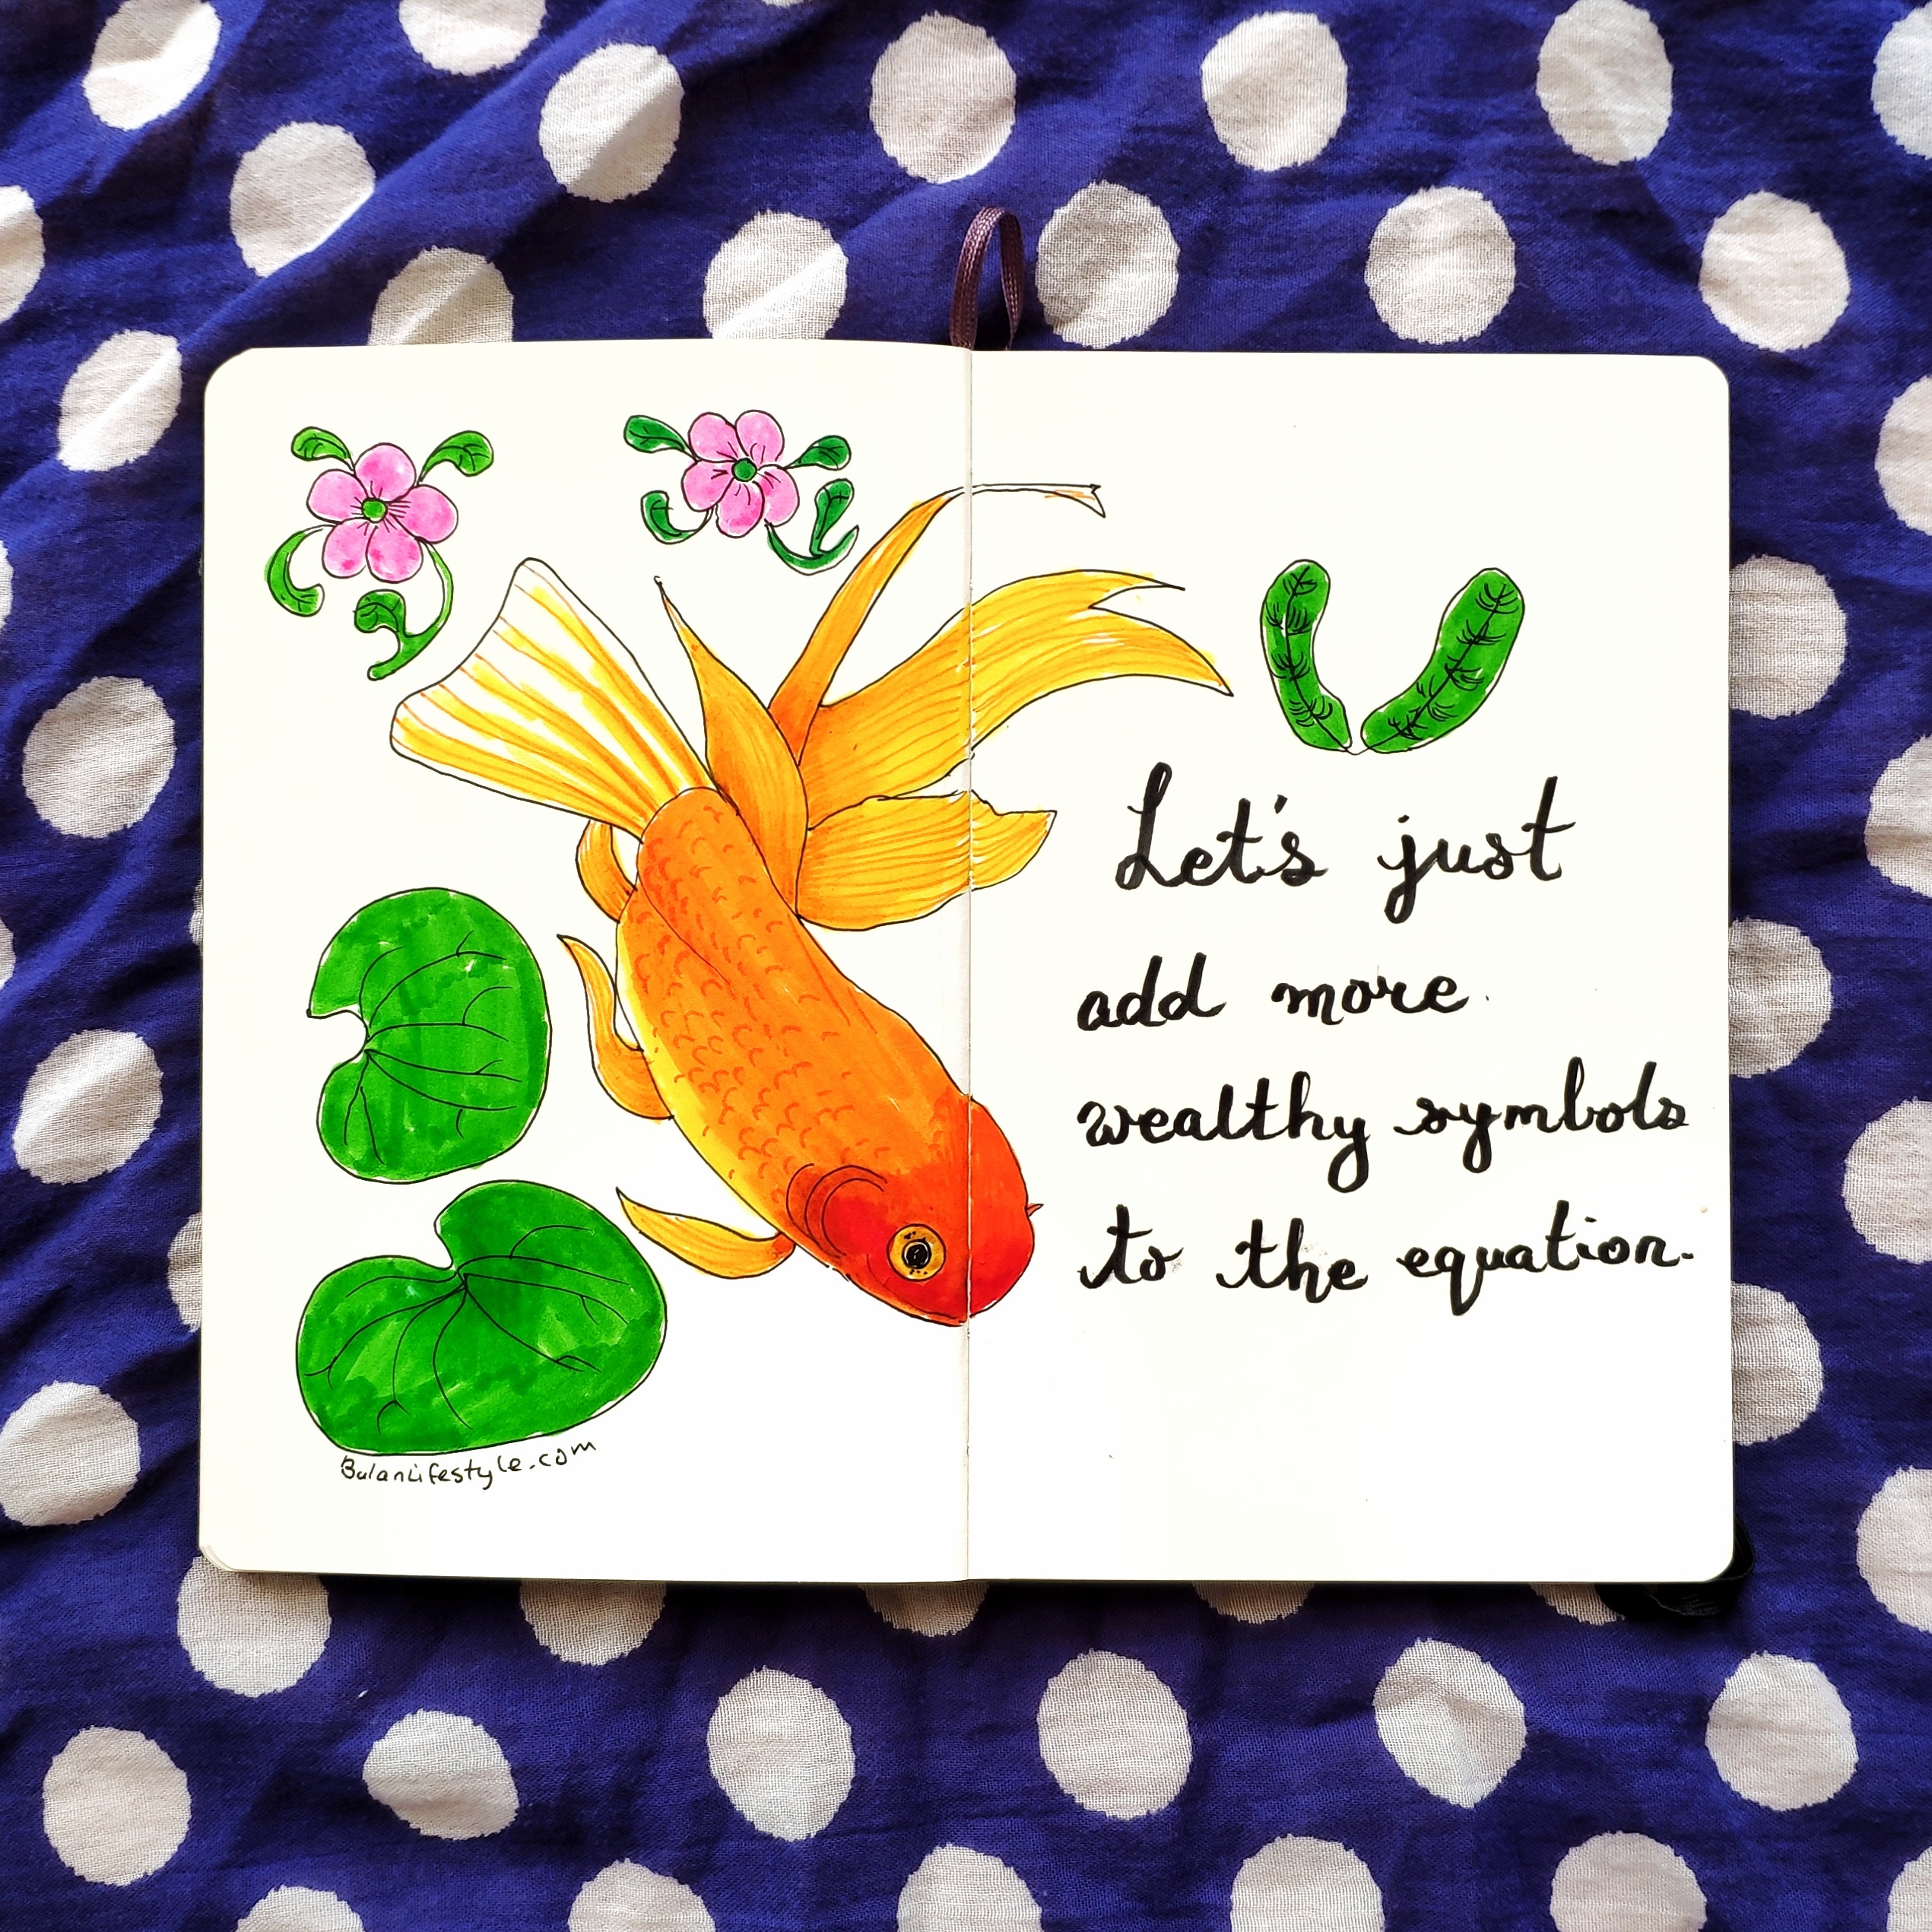 BulanLifestyle.com
Let's just
add more
wealthy symbols
to the equation.